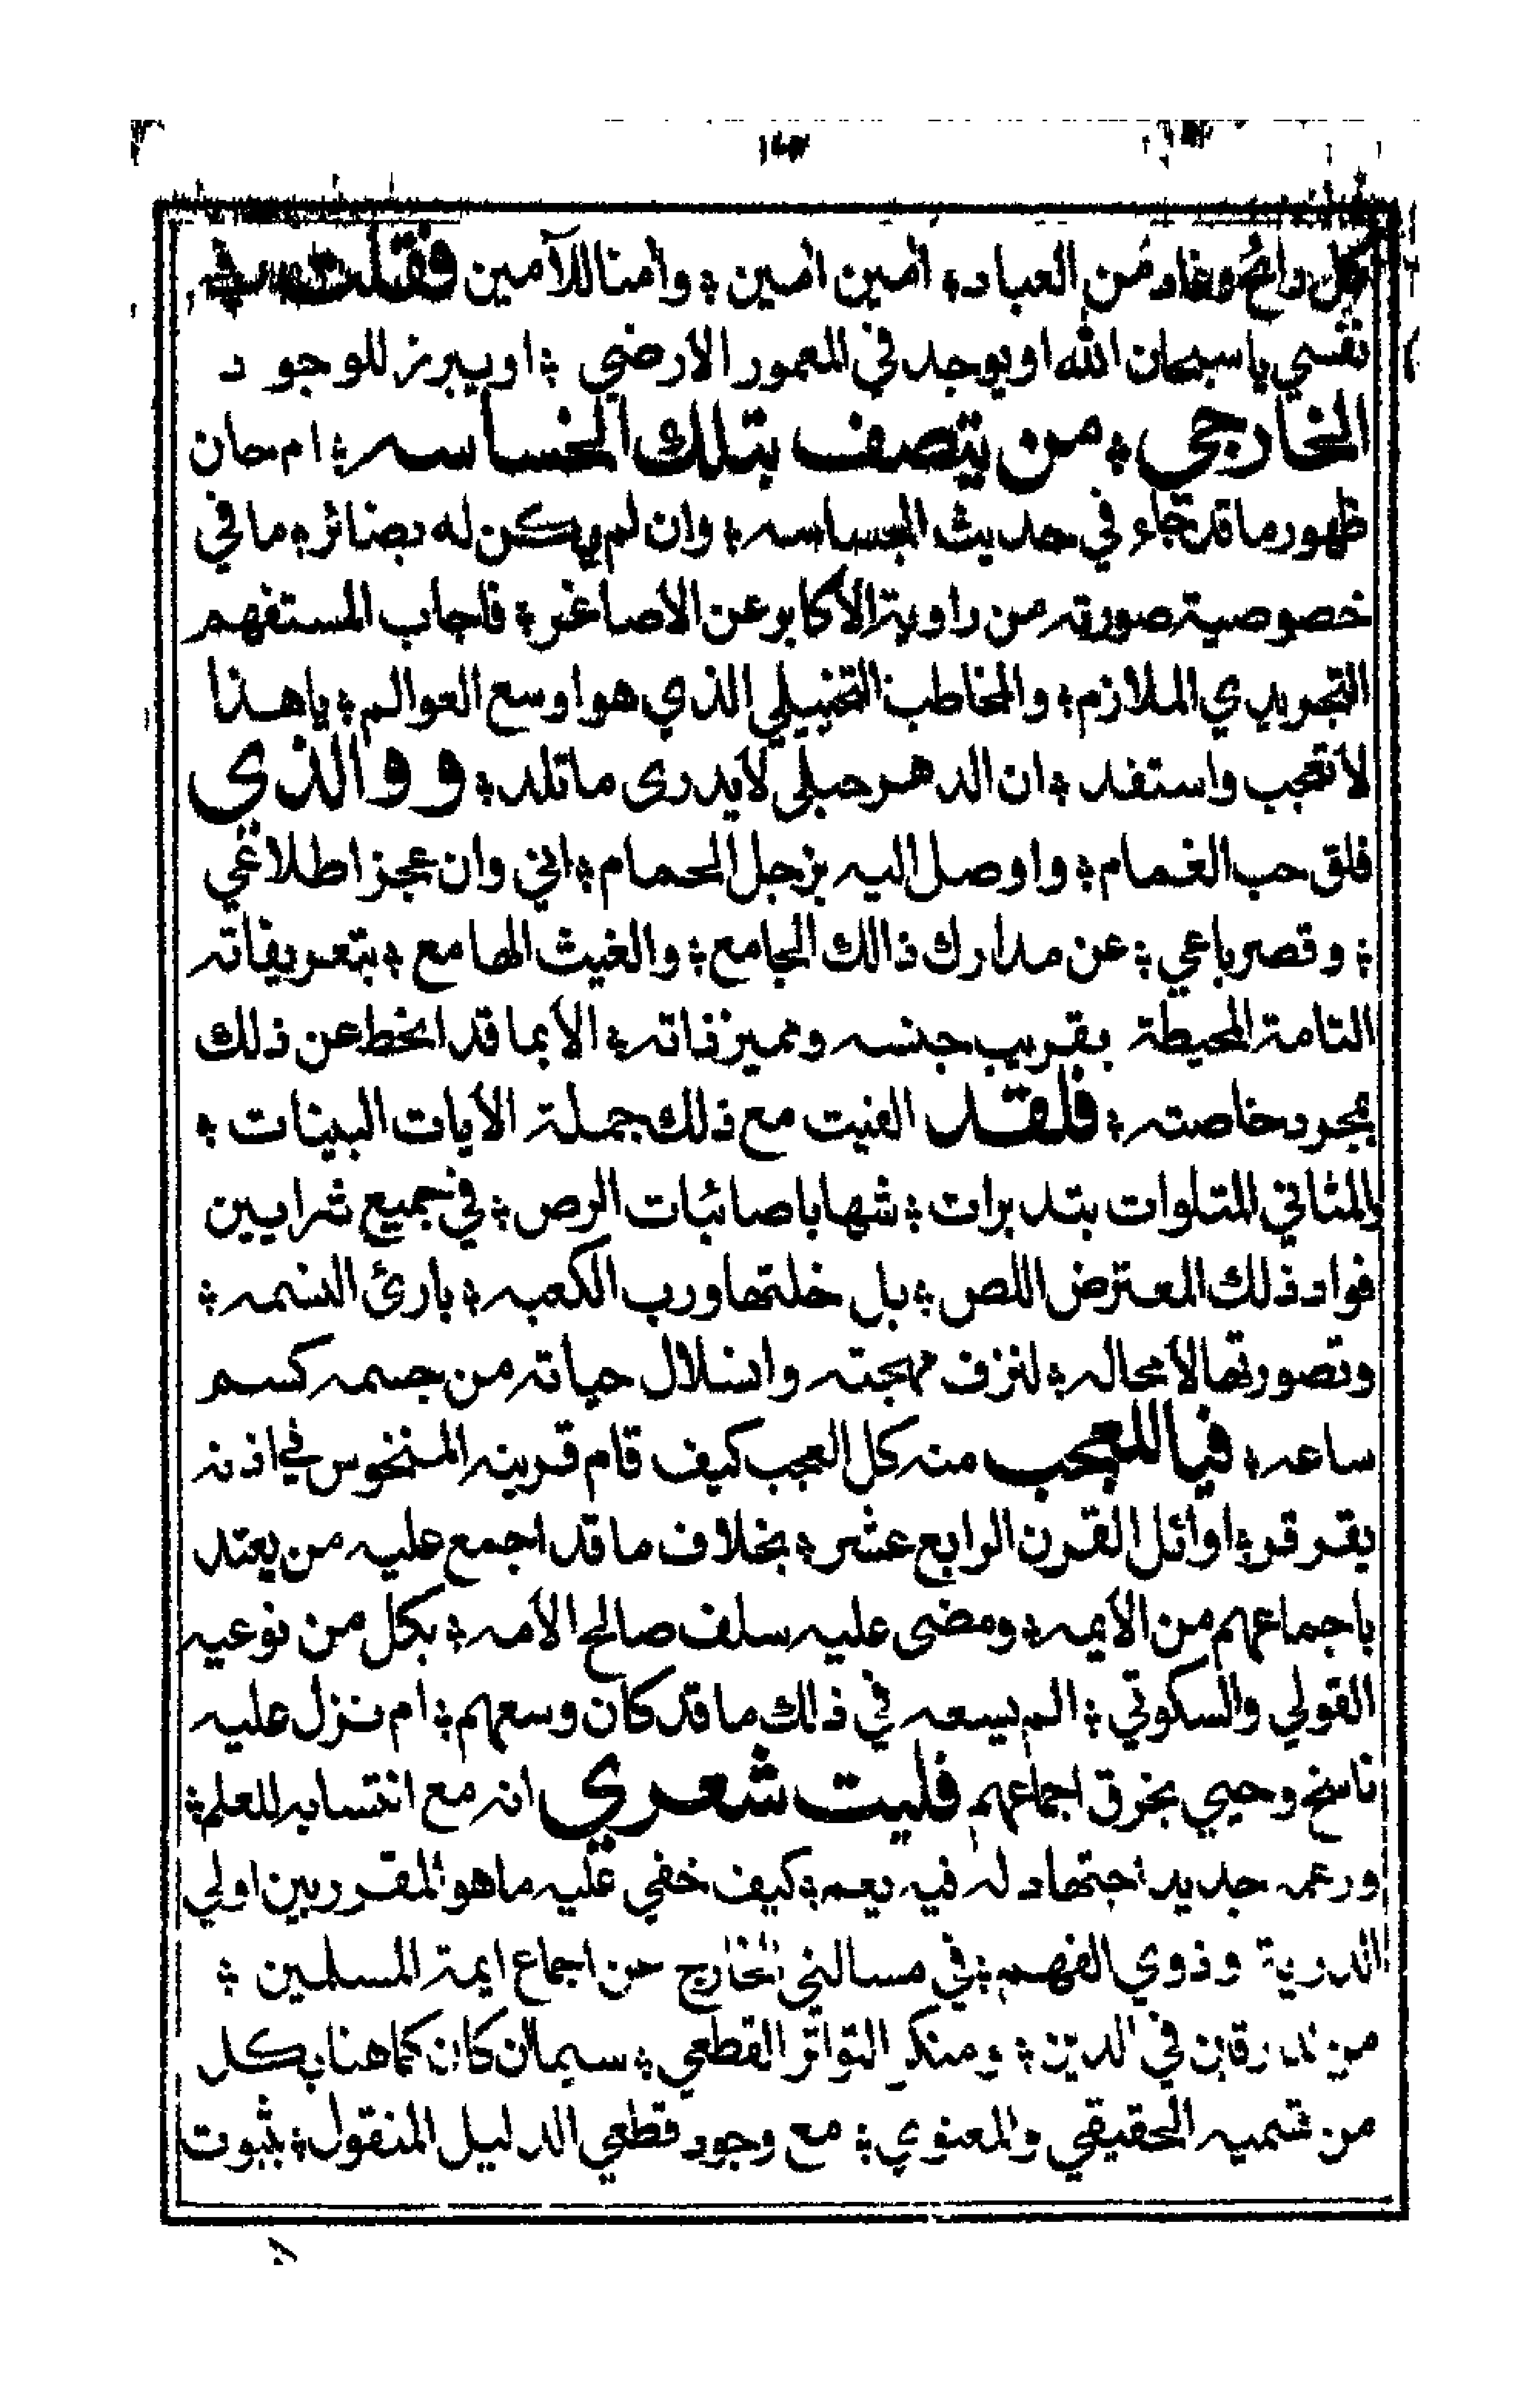 كل رائح وغاد من العباد ؛ امين امين ؛ وامنا للآمين فقلت في
نفسي يا سبحان الله او يوجد في المعمور الارضي ؛ او يبرز للوجود
الخارجي ؛ من يتصف بتلك الخساسه ؛ ام حان
ظهور ما قد جاء في حديث الجساسه ؛ وان لم يكن له بضائر ؛ ما في
خصوصية صورته من راوية الأكابر عن الأصاغر ؛ فاجاب المستفهم
التجريدي الملازم ؛ والمخاطب التخييلي الذي هو اوسع العوالم ؛ يا هذا
لا تعجب واستفد ؛ ان الدهر حبلى لا يدرى ما تلد ؛ و والذي
فلق حب الغمام ؛ واوصل اليه بزجل الحمام ؛ اني وان عجز اطلاعي
؛ وقصر باعي ؛ عن مدارك ذالك الجامع ؛ والغيث الهامع ؛ بتعريفاته
التامة المحيطة بقريب جنسه ومميز ذاته ؛ الا بما قد انحط عن ذلك
بمجرد خاصته ؛ فلقد الفيت مع ذلك جملة الآيات البينات ؛
والمثاني المتلوات بتدبرات ؛ شهابا صائبات الرص ؛ في جميع شرايين
فواد ذلك المعترض اللص ؛ بل خلتها ورب الكعبه ؛ بارئ النسمه ؛
وتصورتها لا محاله ؛ لنزف مهجته وانسلال حياته من جسمه كسم
ساعه ؛ فيا للعجب منه كل العجب كيف قام قرينه المنخوس في اذنه
بقرقر ؛ اوائل القرن الرابع عشر ؛ بخلاف ما قد اجمع عليه من يعتد
باجماعهم من الأيمه ؛ ومضى عليه سلف صالح الأمه ؛ بكل من نوعيه
القولي والسكوتي ؛ الم يسعه في ذلك ما قد كان وسعهم ؛ ام نزل عليه
ناسخ وحيي بخرق اجماعهم فليت شعري انه مع انتسابه للعلم ؛
وزعمه جديد اجتهاد له فيه يعم ؛ كيف خفي عليه ما هو المقرر بين اولي
الدرية وذوي الفهم ؛ في مسالتي الخارج عن اجماع ايمة المسلمين ؛
من في الدين ؛ ومنكر التواتر القطعي ؛ سيما ان كان كما هنا بكل
من قسميه الحقيقي والمعنوي ؛ مع وجود قطعي الدليل المنقول ؛ بثبوت